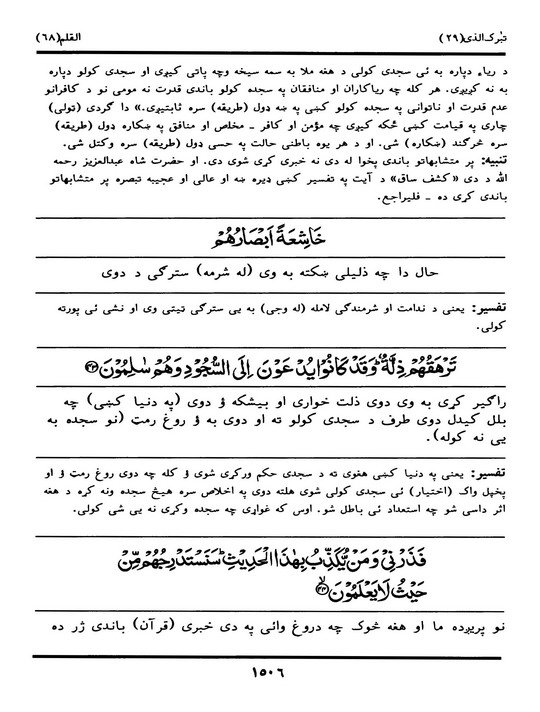 تبٰرک الذی (۲۹) القلم (۶۸)
د ریاء دپاره به ئی سجدی کولی د هغه ملا به سمه سیخه وچه پاتی کیږی او سجدی کولو دپاره
به نه کږیږی. هر کله چه ریاکاران او منافقان په سجده کولو باندی قدرت نه مومی نو د کافرانو
عدم قدرت او ناتوانی په سجده کولو کښی په ښه ډول (طریقه) سره ثابتیږی. دا گردی (ټولی)
چاری په قیامت کښی ځکه کیږی چه مؤمن او کافر ـ مخلص او منافق په ښکاره ډول (طریقه)
سره څرگند (ښکاره) شی. او د هر یوه باطنی حالت په حسی ډول (طریقه) سره وکتل شی.
تنبیه: پر متشابهاتو باندی پخوا له دی نه خبری کړی شوی دی. او حضرت شاه عبدالعزیز رحمه
الله د دی «کشف ساق» د آیت په تفسیر کښی ډیره ښه او عالی او عجیبه تبصره پر متشابهاتو
باندی کړی ده ـ فلیراجع.
خَاشِعَةً اَبْصَارُهُمْ
حال دا چه ذلیلی ښکته به وی (له شرمه) سترگی د دوی
تفسیر: یعنی د ندامت او شرمندگی لامله (له وجی) به یی سترگی ټیټی وی او نشی ئی پورته
کولی.
تَرْهَقُهُمْ ذِلَّةٌ ؕ وَقَدْ كَانُوْا يُدْعَوْنَ اِلَى السُّجُوْدِ وَهُمْ سٰلِمُوْنَ ﴿۴۳﴾
راگیر کړی به وی دوی ذلت خواری او بیشکه ؤ دوی (په دنیا کښی) چه
بلل کیدل دوی طرف د سجدی کولو ته او دوی به ؤ روغ رمټ (نو سجده به
یی نه کوله).
تفسیر: یعنی په دنیا کښی هغوی ته د سجدی حکم ورکړی شوی ؤ کله چه دوی روغ رمټ ؤ او
پخپل واک (اختیار) ئی سجدی کولی شوی هلته دوی په اخلاص سره هیڅ سجده ونه کړه د هغه
اثر داسی شو چه استعداد ئی باطل شو. اوس که غواړی چه سجده وکړی نه یی شی کولی.
فَذَرْنِيْ وَمَنْ يُّكَذِّبُ بِهٰذَا الْحَدِيْثِ ؕ سَنَسْتَدْرِجُهُمْ مِّنْ
حَيْثُ لَا يَعْلَمُوْنَ ﴿۴۴﴾
نو پریږده ما او هغه څوک چه دروغ وائی په دی خبری (قرآن) باندی ژر ده
۱۵۰۶